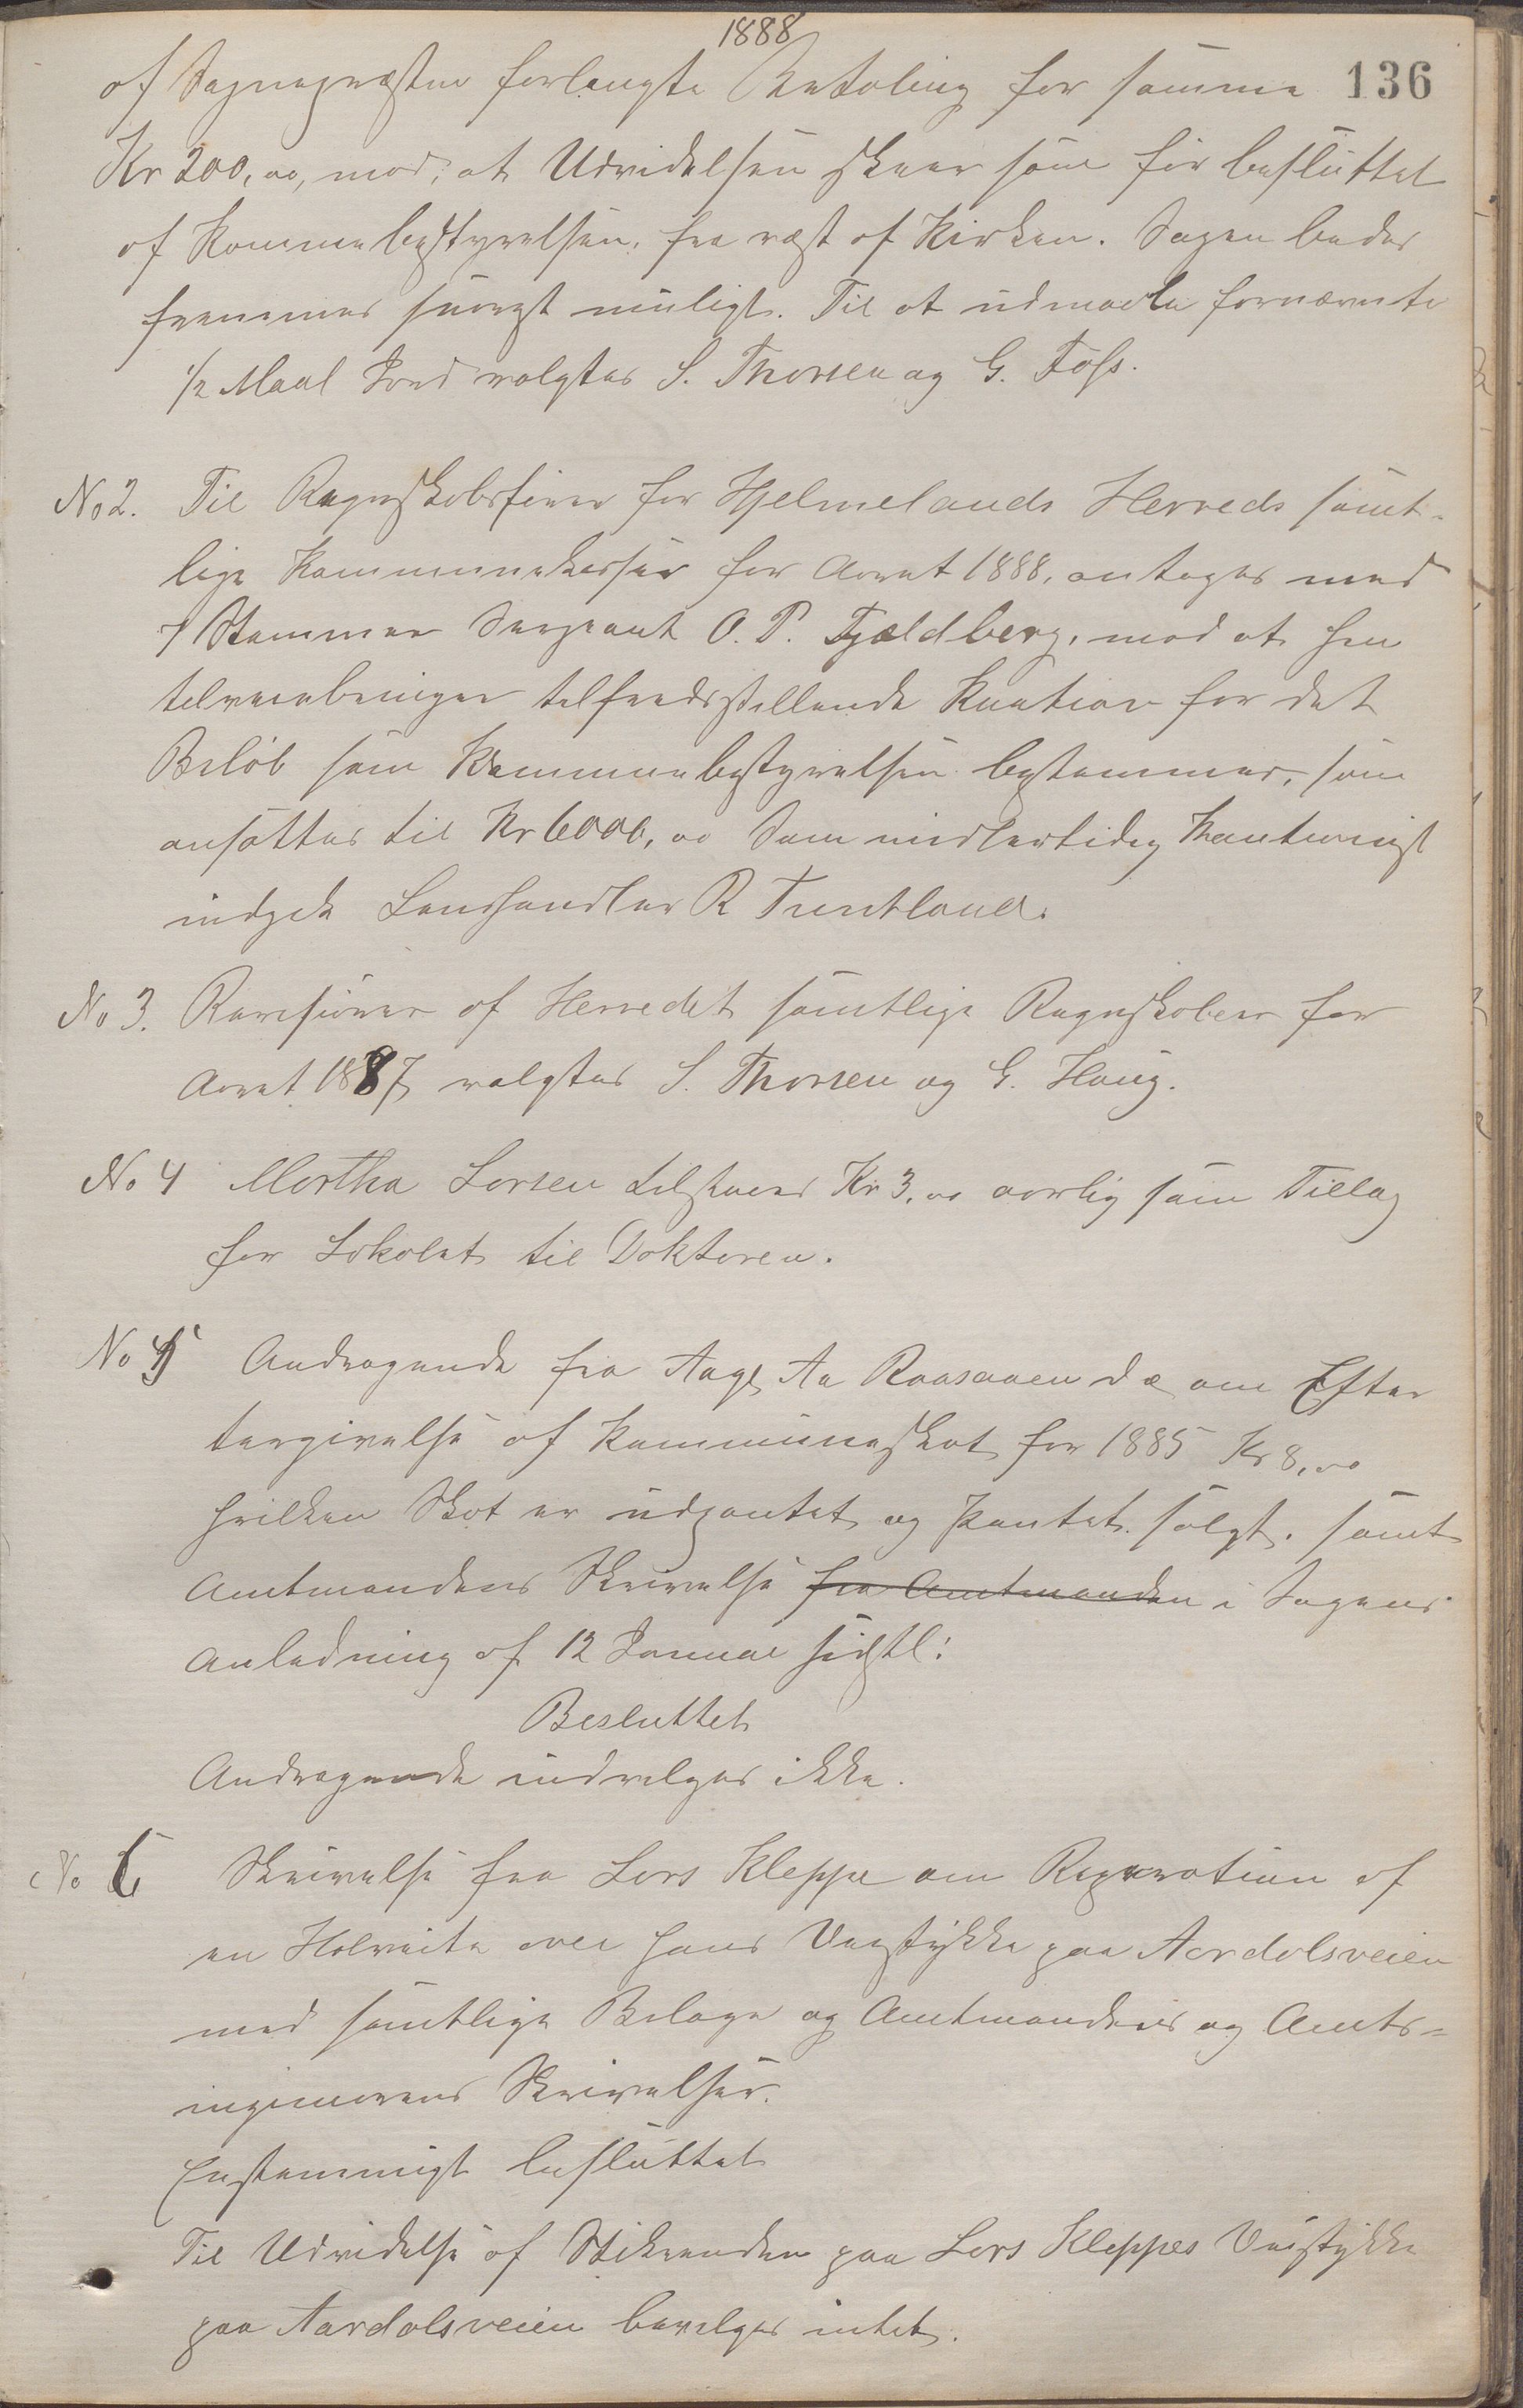 1888
136
af Sognepræsten forlangte Betaling for samme
Kr 200,00, mod, at Udvidelsen skeer som før besluttet
af Kommunebestyrelsen, fra vest af Kirken. Sagen bedes
fremmes snarest muligt. Til at udmaale fornævnte
1/2 Maal Jord valgtes S. Thorsen og G. Foss.
No 2. Til Regnskabsfører for Hjelmelands Herreds samt-
lige Kommunekasser for Aaret 1888, antages med
7 Stemmer Sergeant O. P. Fjældberg, mod at han
tilveiebringer tilfredsstillende Kaution for det
Beløb som Kommunebestyrelsen bestemmer, som
ansattes til Kr 6000,00 Som midlertidig Kautionist
indgik Landhandler R Tuntland.
No 3. Revisorer af Herredets samtlige Regnskaber for
Aaret 1887 valgtes S. Thorsen og G. Haug.
No 4 Martha Larsen tilstaaes Kr 3,00 aarlig som Tillæg
for Lokalet til Doktoren.
No 5 Andragende fra Aage Aa Raasaaen d æ om Efter
tergivelse af Kommuneskat for 1885 Kr 8,00
hvilken Skat er udpantet og Pantet solgt, samt
Amtmandens Skrivelse fra Amtmanden i Sagens
Anledning af 12 Januar sidstl:
Besluttet
Andragende indvilges ikke.
No 6 Skrivelse fra Lars Kleppe om Reparation af
en Holveite over hans Veistykke paa Aardalsveien
med samtlige Bilage og Amtmandens og Amts-
ingeniørens Skrivelser.
Enstemmigt besluttet
Til Udvidelse af Stikrenden paa Lars Kleppes Veistykke
paa Aardalsveien bevilges intet.